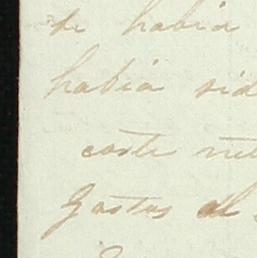 se habia
habia sid
coste net
Gastos al